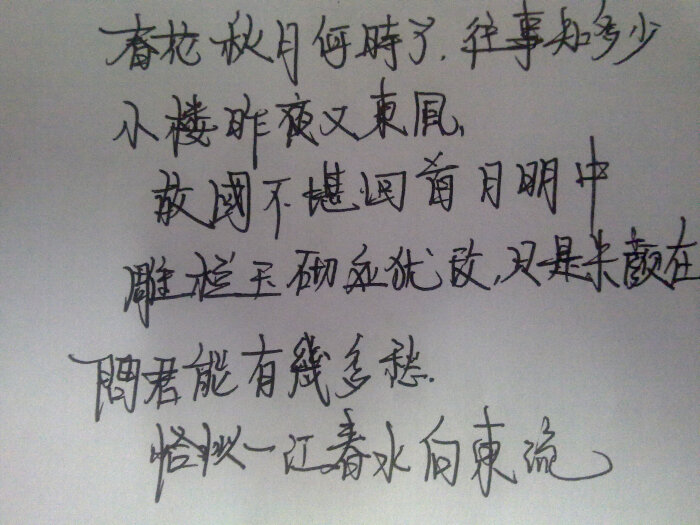 春花秋月何時了,往事知多少
小楼昨夜又東風,
故國不堪回首月明中
雕栏玉砌应犹故,只是朱颜在
問君能有幾多愁.
恰似一江春水向東流